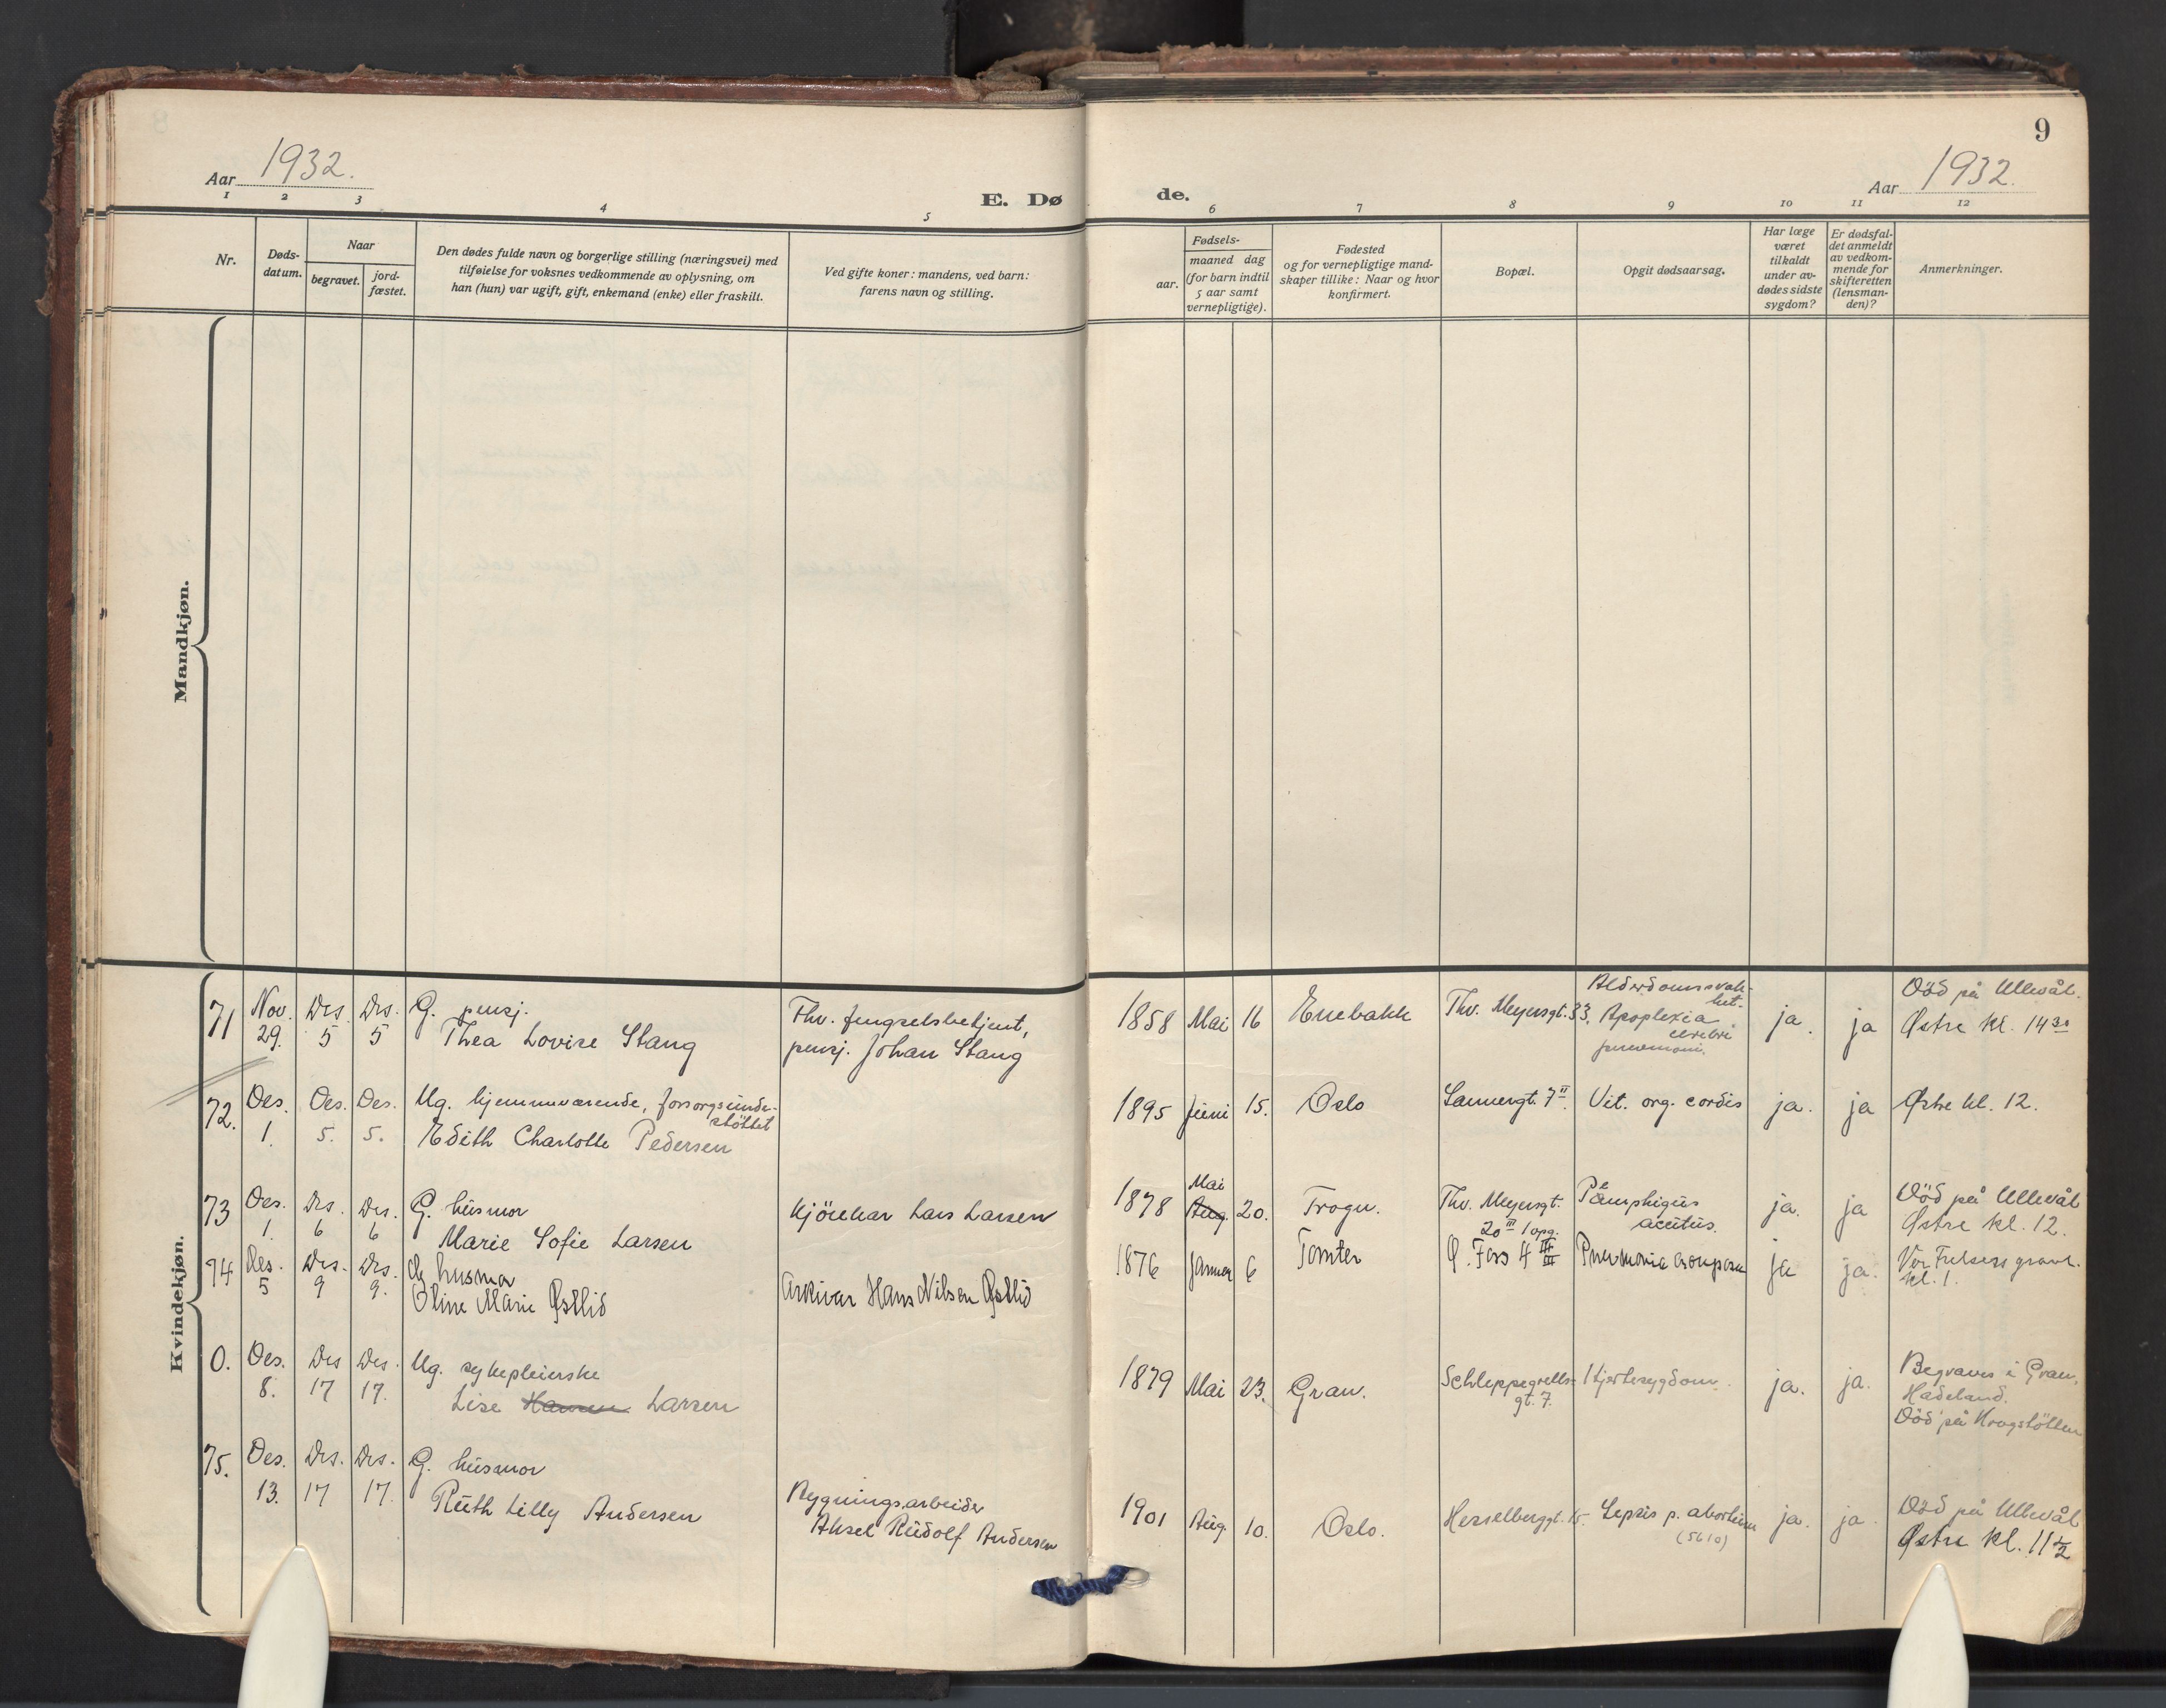 9
Aar 1932.
E. Dø
de.
Aar 1932.
1 2 3 4 5 6 7 8 9 10 11 12
Nr.
Døds-
datum.
Naar
begravet.
jord-
fæstet.
Den dødes fulde navn og borgerlige stilling (næringsvei) med
tilføielse for voksnes vedkommende av oplysning, om
han (hun) var ugift, gift, enkemand (enke) eller fraskilt.
Ved gifte koner: mandens, ved barn:
farens navn og stilling.
Fødsels-
aar.
maaned dag
(for barn indtil
5 aar samt
vernepligtige).
Fødested
og for vernepligtige mand-
skaper tillike: Naar og hvor
konfirmert.
Bopæl.
Opgit dødsaarsag.
Har læge
været
tilkaldt
under av-
dødes sidste
sygdom?
Er dødsfal-
det anmeldt
av vedkom-
mende for
skifteretten
(lensman-
den)?
Anmerkninger.
Mandkjøn.
Kvindekjøn.
71
Nov.
29.
Des.
5
Des.
5
G. pensj.
Thea Lovise Stang
Fhv. fengselsbetjent,
pensj. Johan Stang
1858 Mai 16
Enebakk
Thv. Meyersgt. 33.
Alderdomssvak-
het.
Apoplexia
cerebri
pneumoni.
ja.
ja
Död på Ullevål.
Østre kl. 14 30
72.
Des.
1.
Des.
5.
Des.
5.
Ug. hjemmeværende, forsorgsunder-
støttet
Edith Charlotte Pedersen
1895 Juni 15.
Oslo
Sannergt. 7 II.
Vit. org. cordis
ja.
ja
Østre kl. 12.
73
Des.
1.
Des.
6
Des.
6
G. husmor
Marie Sofie Larsen
Kjörekar Lars Larsen
1878
Mai
Aug.
20.
Trogn.
Thv. Meyersgt.
20 III 1 opg.
Pemphigus
acutus.
ja.
ja
Död på Ullevål
Østre kl. 12.
74
Des.
5
Des.
9
Des.
9.
G. husmor
Oline Marie Østlid
Arkivar Hans Nilsen Østlid
1876 Januar 6
Tomter
Ø. Foss 4 III
Pneumonia crouposa
ja
ja.
Vår Frelsers gravl.
kl. 1.
0.
Des.
8.
Des
17
Des.
17.
Ug. sykepleierske
Lise Hansen Larsen
1879 Mai 23.
Gran.
Schleppegrells-
gt. 7.
Hjertesygdom.
ja.
ja.
Begraves i Gran,
Hadeland.
Död på Krogstötten
75.
Des.
13.
Des.
17
Des.
17.
G. husmor
Ruth Lilly Andersen
Bygningsarbeider
Aksel Rudolf Andersen
1901 Aug. 10.
Oslo.
Hesselberggt. 15.
Sepsis p. abortum
(5610)
ja.
ja.
Död på Ullevål
Østre kl. 11 1/2